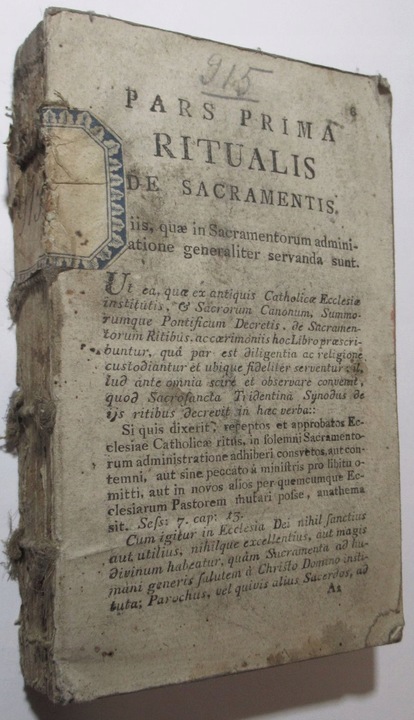 915
6
PARS PRIMA
RITUALIS
DE SACRAMENTIS.
iis, quæ in Sacramentorum admini-
atione generaliter servanda sunt.
Ut ea, quæ ex antiquis Catholicæ Ecclesiæ
institutis, & Sacrorum Canonum, Summo-
rumque Pontificum Decretis, de Sacramen-
torum Ritibus, ac cærimoniis hoc Libro præscri-
buntur, quâ par est diligentia ac religione
custodiantur et ubique fideliter serventur; il-
lud ante omnia scire et observare convenit,
quod Sacrosancta Tridentina Synodus de
ijs ritibus decrevit in hæc verba::
Si quis dixerit, receptos et approbatos Ec-
clesiae Catholicæ ritus, in solemni Sacramento-
rum administratione adhiberi consvetos, aut con-
temni, aut sine peccato à ministris pro libitu o-
mitti, aut in novos alios per quemcumque Ec-
clesiarum Pastorem mutari posse, anathema
sit. Sess: 7. cap: 13.
Cum igitur in Ecclesia Dei nihil sanctius
aut utilius, nihilque excellentius, aut magis
divinum habeatur, quàm Sacramenta ad hu-
mani generis salutem à Christo Domino insti-
tuta; Parochus, vel quivis alius Sacerdos, ad
A2